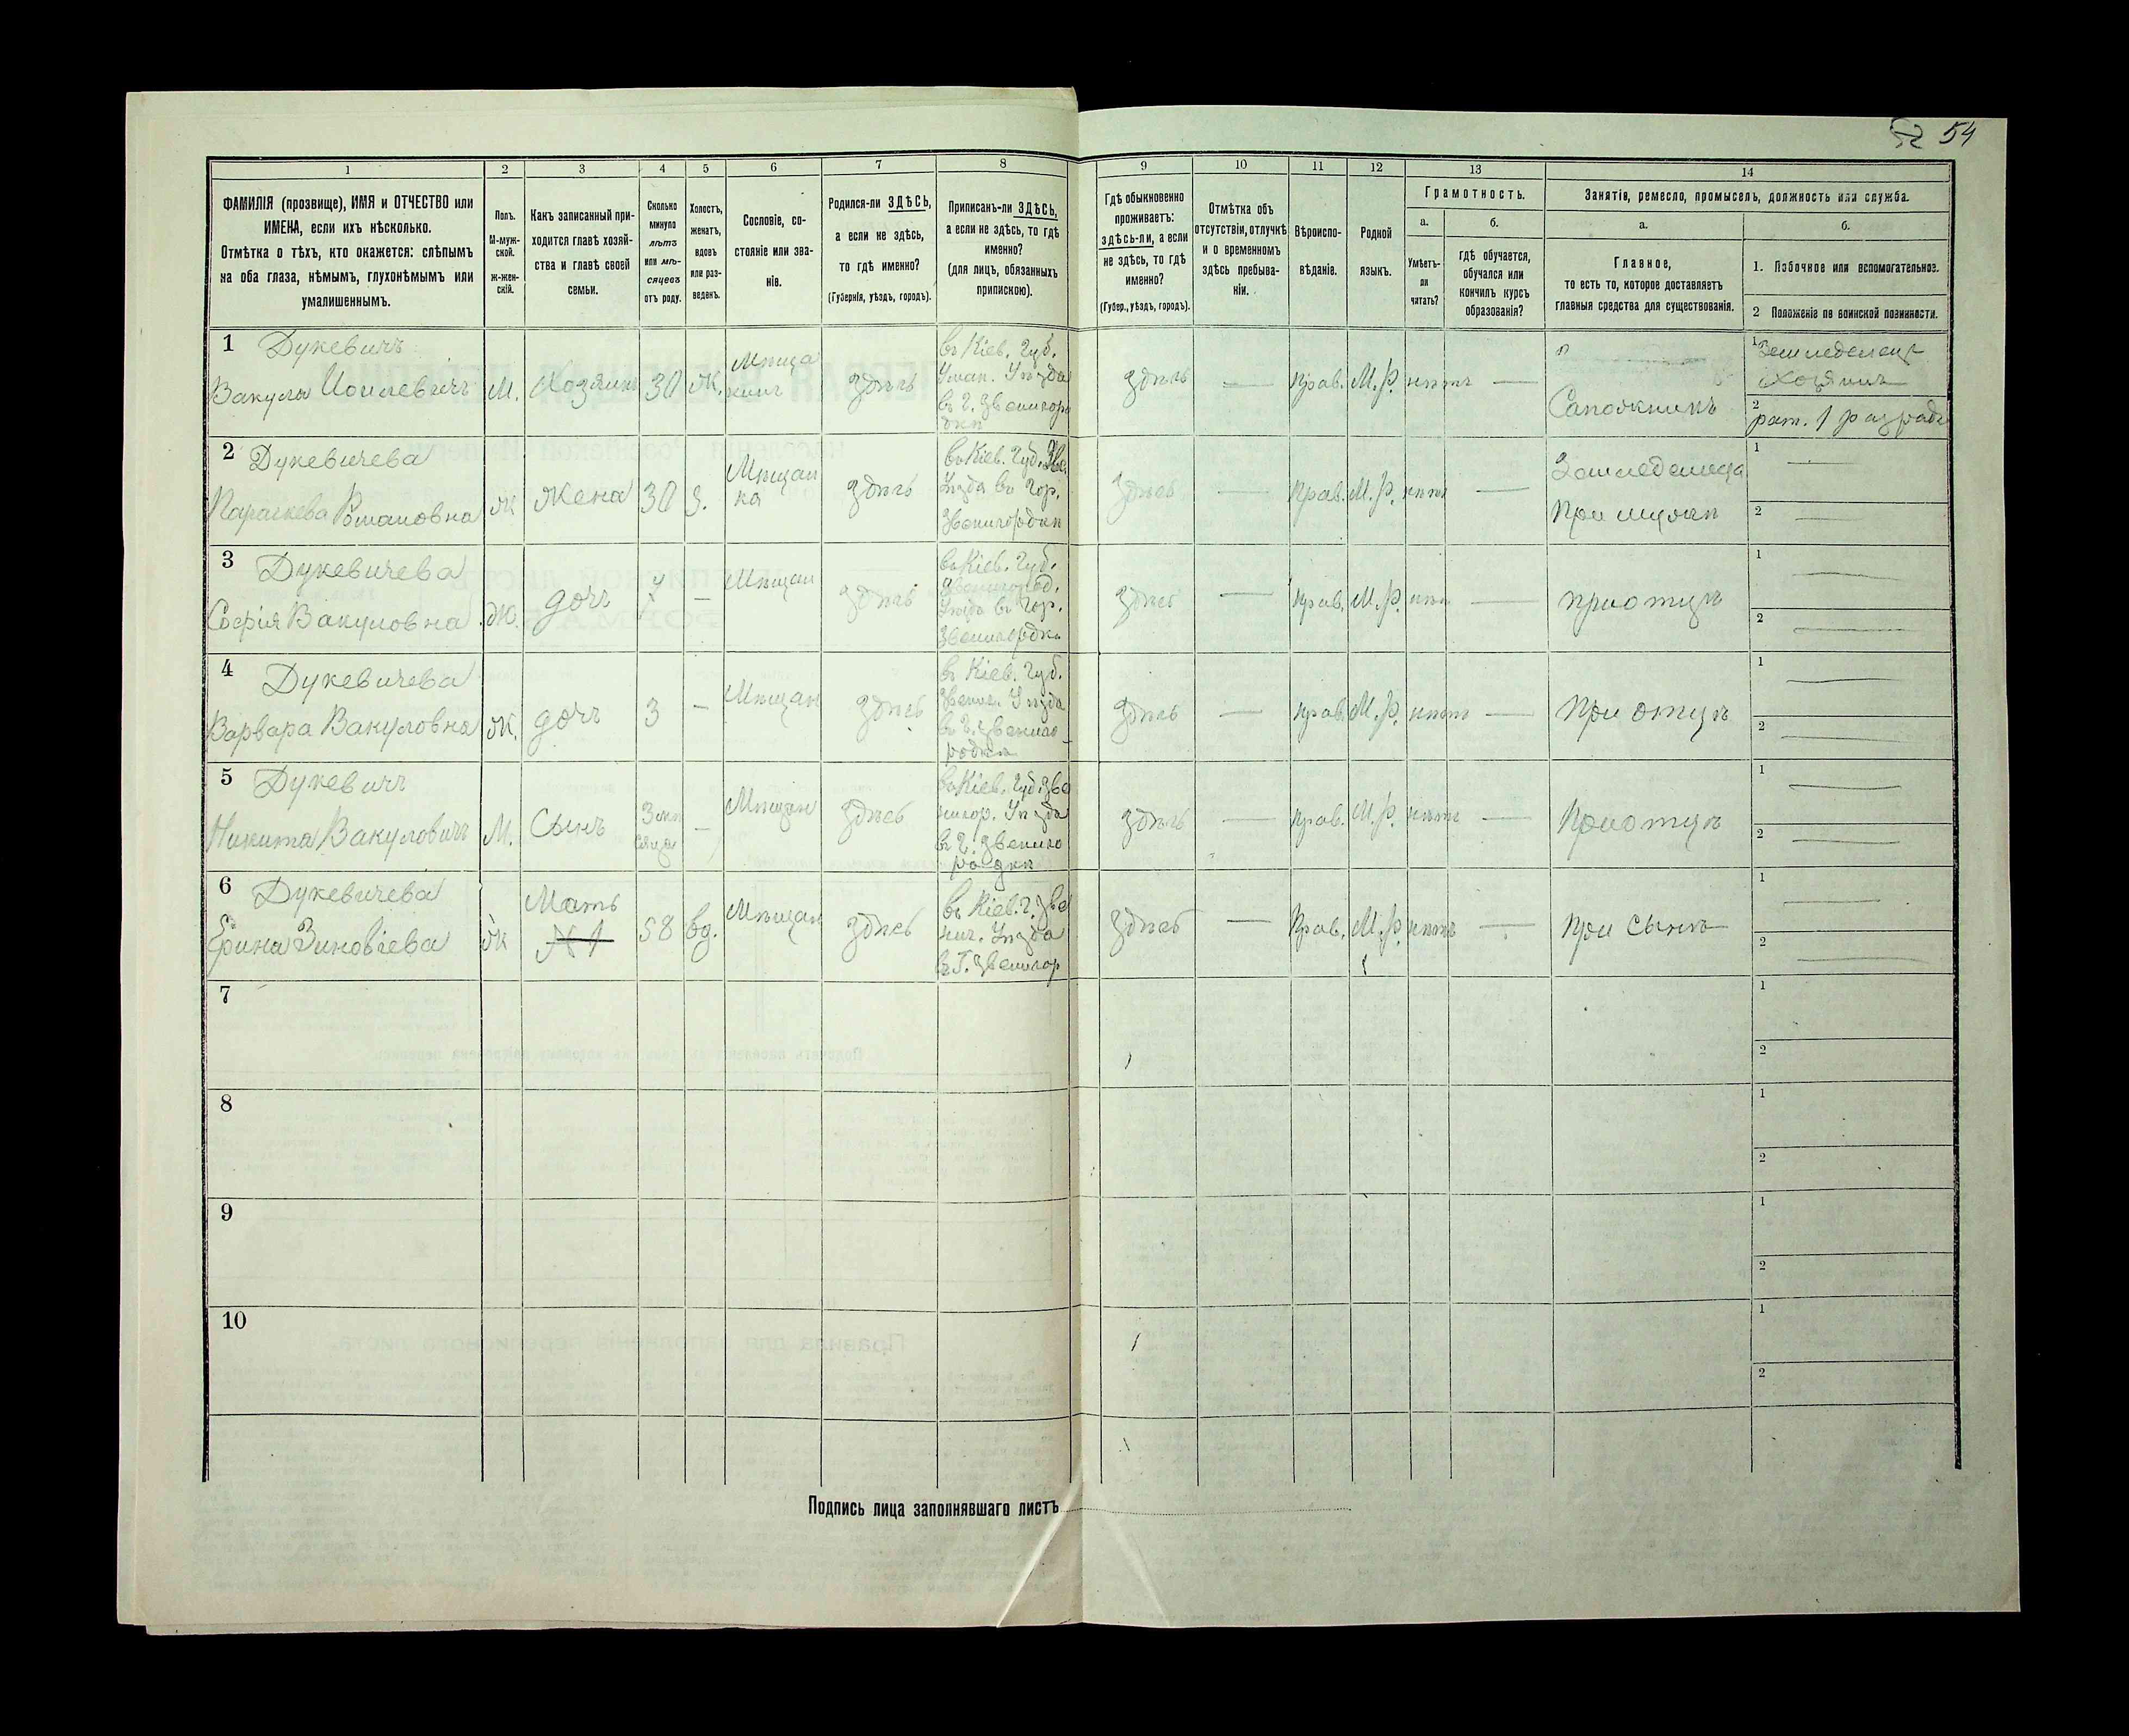 52 54
1 2 3 4 5 6 7 8 9 10 11 12 13 14
ФАМИЛІЯ (прозвище), ИМЯ и ОТЧЕСТВО или
ИМЕНА, если ихъ нѣсколько.
Отмѣтка о тѣхъ, кто окажется: слѣпымъ
на оба глаза, нѣмымъ, глухонѣмымъ или
умалишеннымъ.
Полъ.
М-муж-
ской.
ж-жен-
скій.
Какъ записанный при-
ходится главѣ хозяй-
ства и главѣ своей
семьи.
Сколько
минуло
лѣтъ
или мѣ-
сяцевъ
отъ роду.
Холостъ,
женатъ,
вдовъ
или раз-
веденъ.
Сословіе, со-
стояніе или зва-
ніе.
Родился-ли ЗДѢСЬ,
а если не здѣсь,
то гдѣ именно?
(Губернія, уѣздъ, городъ).
Приписанъ-ли ЗДѢСЬ,
а если не здѣсь, то гдѣ
именно?
(для лицъ, обязанныхъ
припискою).
Гдѣ обыкновенно
проживаетъ:
здѣсь-ли, а если
не здѣсь, то гдѣ
именно?
(Губер., уѣздъ, городъ).
Отмѣтка объ
отсутствіи, отлучкѣ
и о временномъ
здѣсь пребыва-
ніи.
Вѣроиспо-
вѣданіе.
Родной
языкъ.
Грамотность.
а.
Умѣетъ-
ли
читать?
б.
гдѣ обучается,
обучался или
кончилъ курсъ
образованія?
Занятія, ремесло, промыселъ, должность или служба.
а.
Главное,
то есть то, которое доставляетъ
главныя средства для существованія.
б.
1. Побочное или вспомогательное.
2 Положеніе по воинской повинности.
1 Дукевичъ
Вакула Иоилевичъ
М.
Хозяинъ
30
Ж.
Мѣща
нинъ
здѣсь
въ Кіев. Губ.
Уѣзда
въ г. Звениго
здѣсь
—
Прав.
М. Р.
нѣтъ
—
Сапожникъ
1 Земледелец
Хозяинъ
2 рат. 1 разряда
2 Дукевичева
Параскева Романовна
Ж
Жена
30
З.
Мѣщан
ка
здѣсь
въ Кіев. Губ. Зве.
Уѣзда въ Гор.
Звенигородки
здѣсь
—
Прав.
М. Р.
нѣтъ
—
При мужѣ
1 —
2 —
3 Дукевичева
Софія Вакуловна
Ж.
дочь
7
—
Мѣщан
здѣсь
въ Кіев. Губ.
Звенигород.
Уѣзда въ Гор.
Звенигородки
здѣсь
—
Прав.
М. Р.
нѣт
—
при отцѣ
1 —
2 —
4 Дукевичева
Варвара Вакуловна
Ж.
дочь
3
—
Мѣщан
здѣсь
въ Кіев. Губ.
Звениг. Уѣзда
въ Г. Звениго-
родки
здѣсь
—
Прав.
М. Р.
нѣтъ
—
При отцѣ
1 —
2 —
5 Дукевичъ
Никита Вакуловичъ
М.
Сынъ
3 мѣ
сяца
—
Мѣщан
здѣсь
въ Кіев. Губ. Зве
нигор. Уѣзда
въ Г. Звениго
родки
здѣсь
—
Прав.
М. Р.
нѣтъ
—
При отцѣ
1 —
2 —
6 Дукевичева
Ерина Зиновіева
Ж
Мать
№ 1
58
вд.
Мѣщан
здѣсь
въ Кіев. г. Зве
ниг. Уѣзда
въ Г. Звенигор
здѣсь
—
Прав.
М. Р.
нѣтъ
—
При сынѣ
1 —
2 —
7
1
2
8
1
2
9
1
2
10
1
2
Подпись лица заполнявшаго листъ